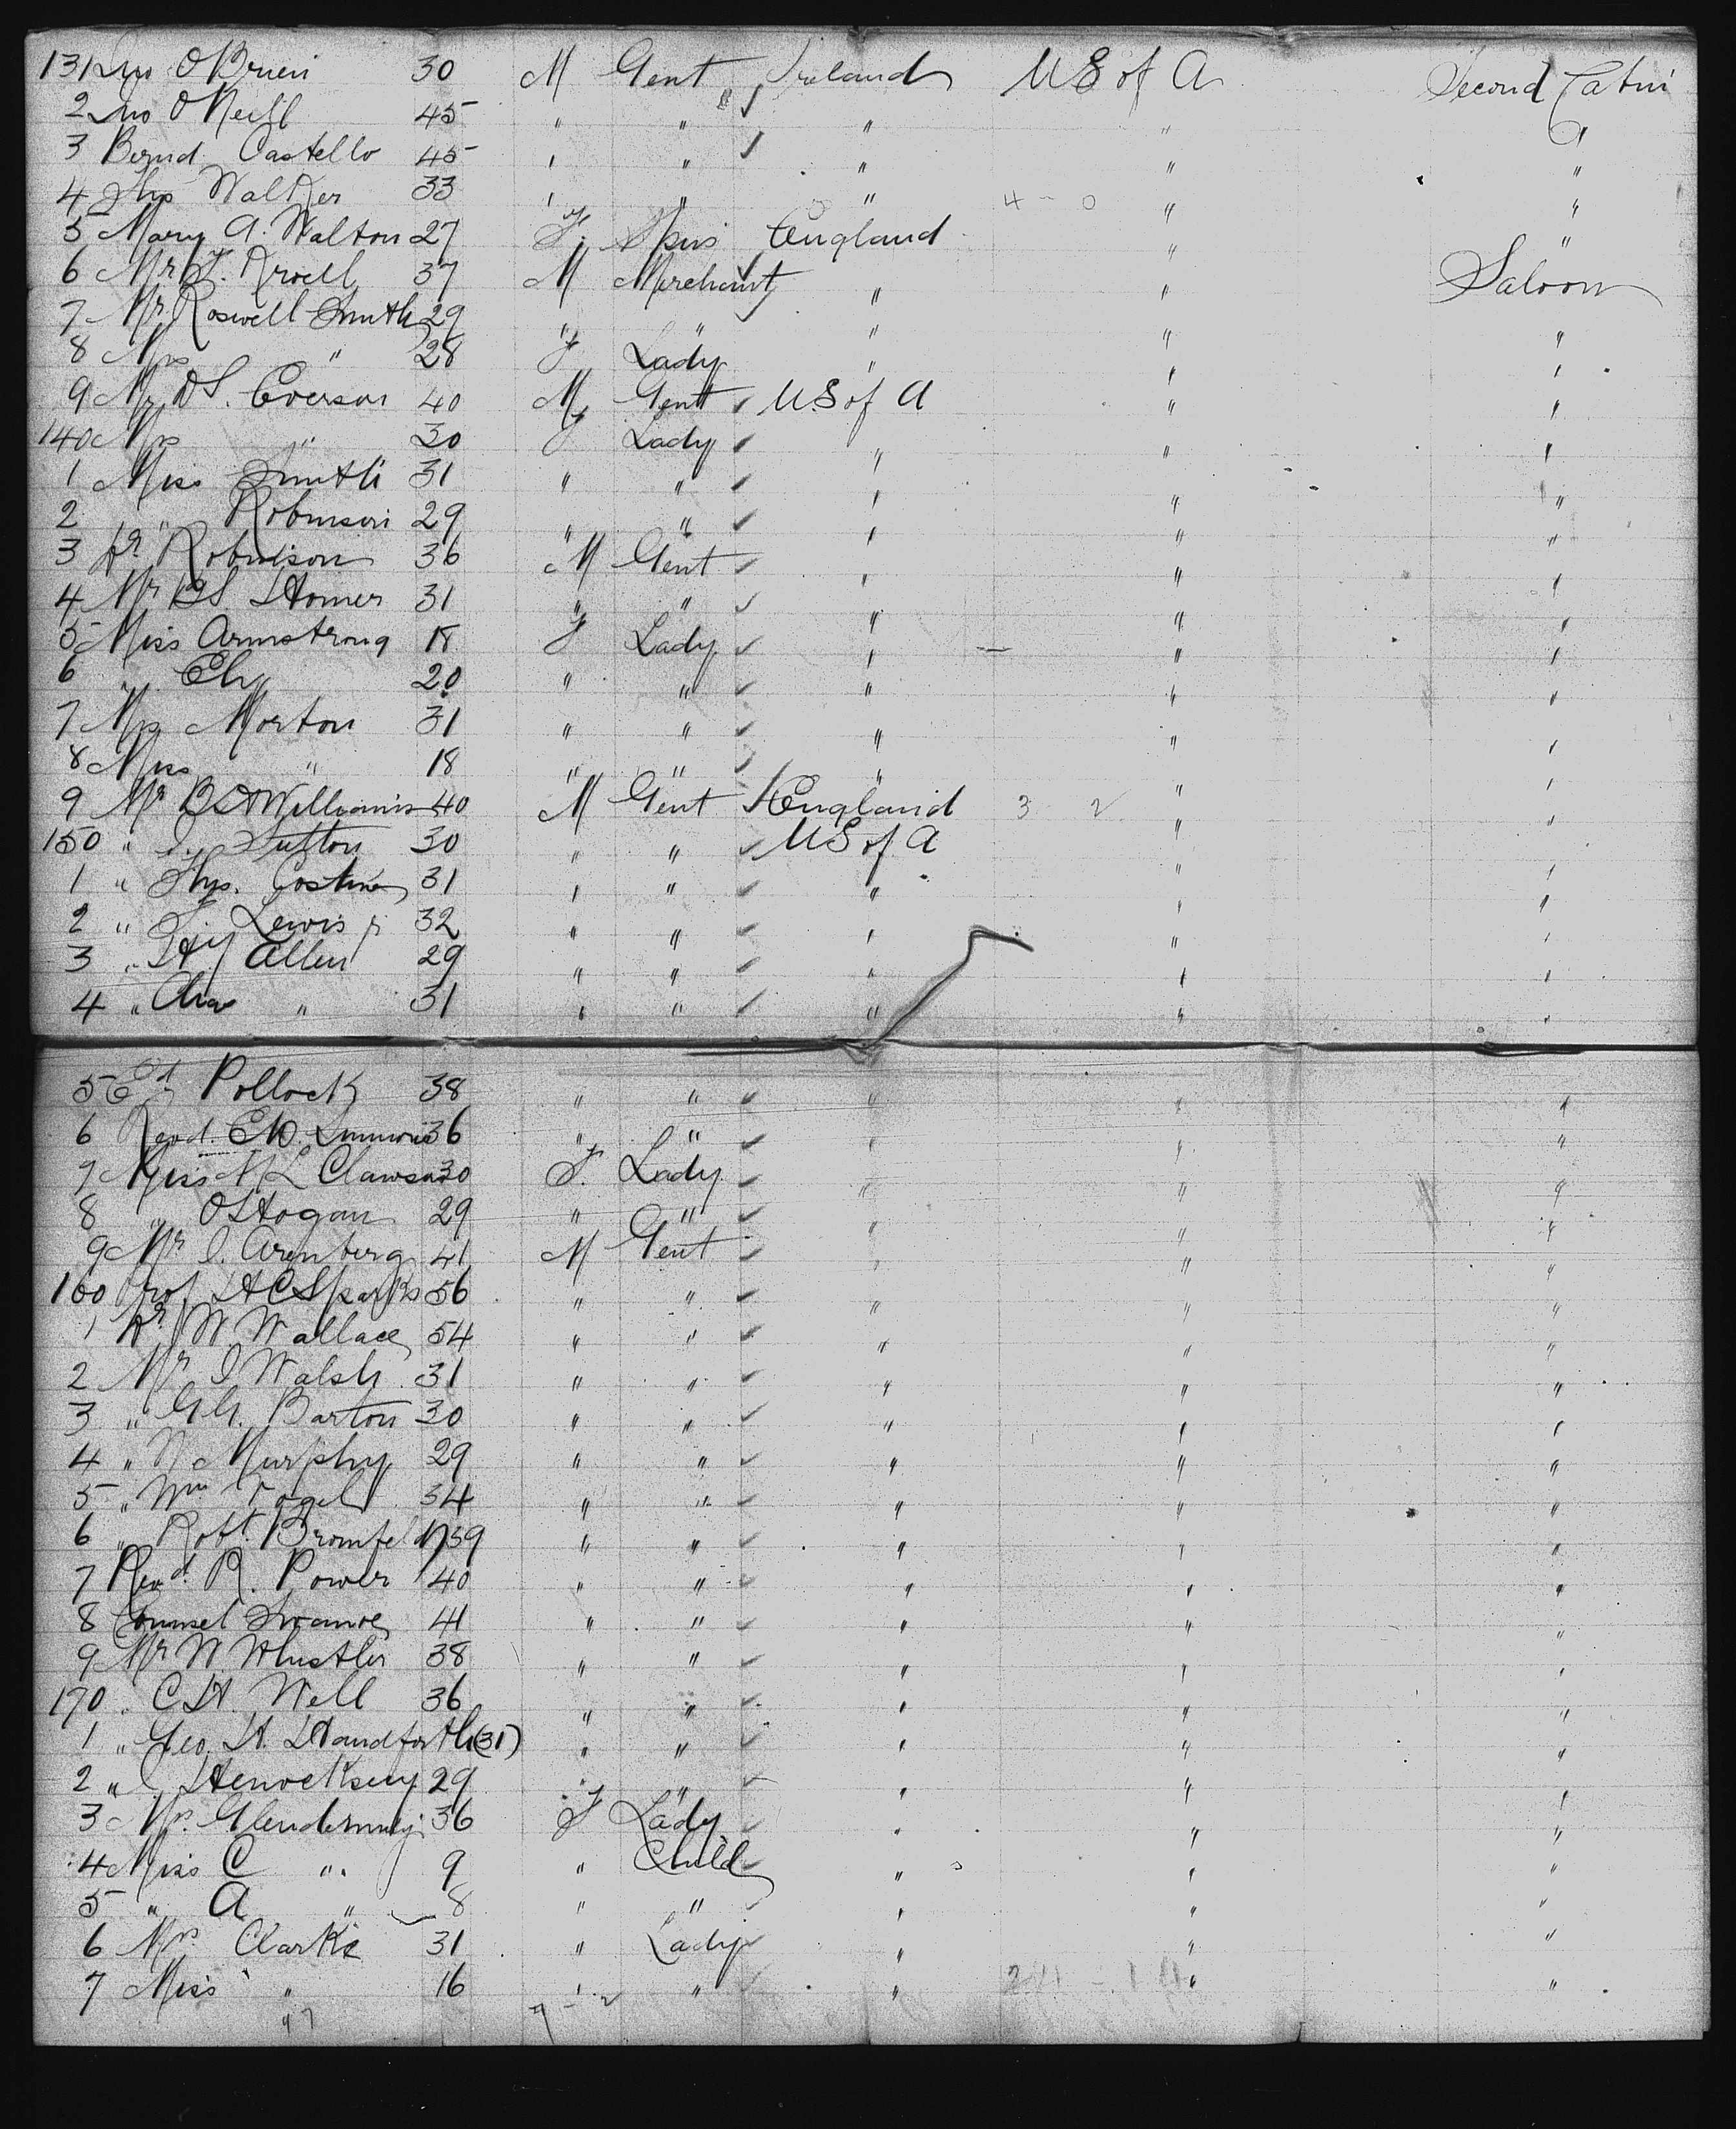 131 Jno O'Brien 30 M Gent Ireland US of A Second Cabin
2 Jno O'Neill 45 " " " " "
3 Bernd Castello 45 " " " " "
4 Thos Walker 33 " " " 4 - 0 " "
5 Mary A. Walton 27 F. Spins England " "
6 Mr F. Kroell 37 M Merchant " " Saloon
7 Mr Roswell Smith 29 " " " " "
8 Mrs " 28 F Lady " " "
9 Mr D S. Everson 40 M Gent US of A " "
140 Mrs " 30 F Lady " " "
1 Miss Smith 31 " " " " "
2 " Robinson 29 " " " " "
3 Dr Robinson 36 M Gent " " "
4 Mr B S Homer 31 " " " " "
5 Miss Armstrong 18 F Lady " " "
6 " Ely 20 " " " " "
7 Mrs Morton 31 " " " " "
8 Miss " 18 " " " " "
9 Mr B H Williams 40 M Gent England 3 2 " "
150 " J. Sutton 30 " " US of A " "
1 " Thos. 31 " " " " "
2 " T. Lewis jr 32 " " " " "
3 " Hy Allen 29 " " " " "
4 " Chas " 31 " " " " "
5 Pollock 38 " " " " "
6 Revd. 36 " " " " "
7 Miss L Clawson 30 F. Lady " " "
8 " O'Hogan 29 " " " " "
9 Mr I. Arenberg 41 M Gent " " "
160 Prof H C Sparks 56 " " " " "
1 Dr W Wallace 54 " " " " "
2 Mr J Walsh 31 " " " " "
3 " G G. Barton 30 " " " " "
4 " N Murphy 29 " " " " "
5 " Wm Vogel 34 " " " " "
6 " Robt. Bromfeld 39 " " " " "
7 Revd. R. Power 40 " " " " "
8 Counsel 41 " " " " "
9 Mr W Whistler 38 " " " " "
170 " C H. Well 36 " " " " "
1 " Geo. H. Handforth (31) " " " " "
2 " 29 " " " " "
3 Mrs. Glendinning 36 F Lady " " "
4 Miss C " 9 " Child " " "
5 " A " 8 " " " " "
6 Mrs. Clarke 31 " Lady " " "
7 Miss " 16 " " " " "